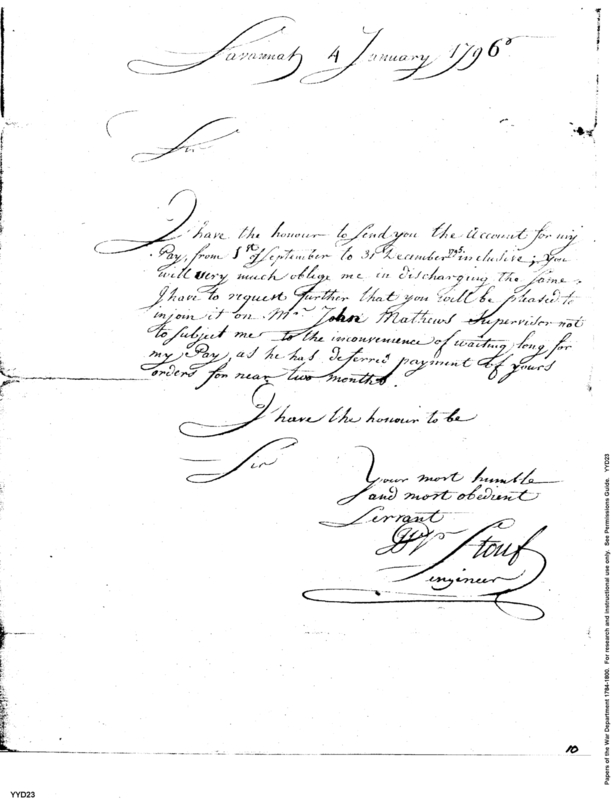 Savannah 4 January 1796
Sir
I have the honour to send you the Account for my
Pay, from 1st of September to 31st December 1795 inclusive; you
will very much oblige me in discharging the same,
I have to request further that you will be pleased to
injoin it on Mr John Mathews Supervisor not
to subject me to the inconvenience of waiting long for
my Pay, as he has deferred payment of yours
orders for near two months.
I have the honour to be
Sir
Your most humble
and most obedient
Servant
Stouf
engineer
10
YYD23
Papers of the War Department 1784-1800. For research and instructional use only. See Permissions Guide. YYD23